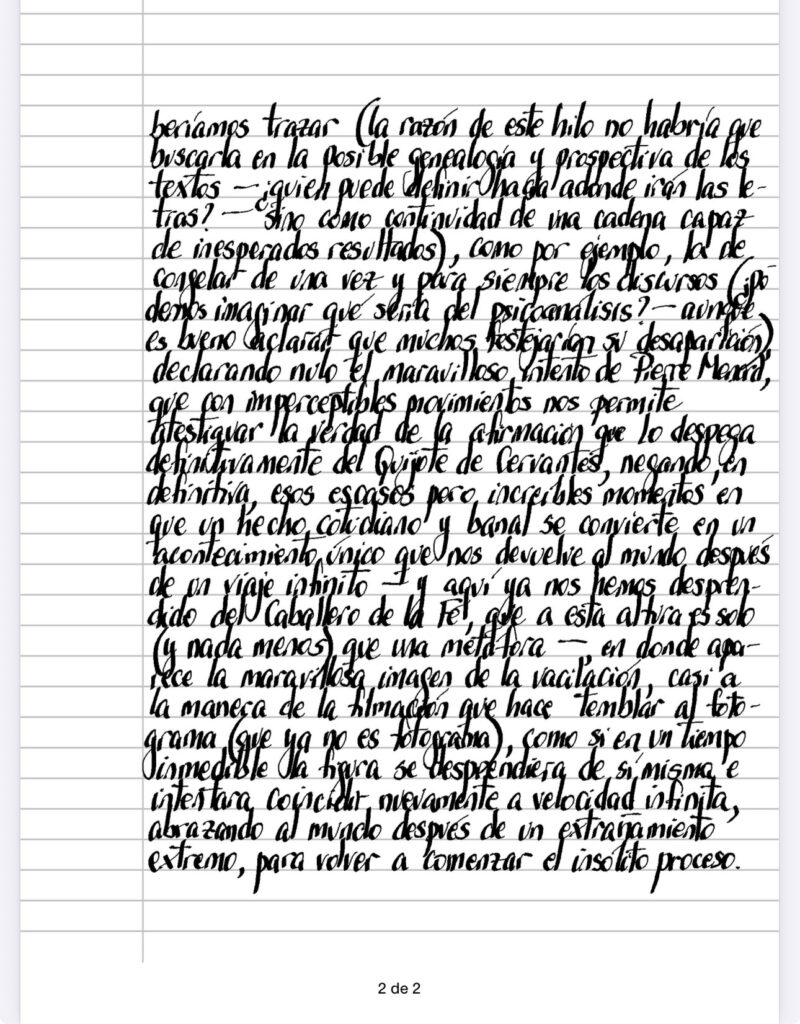 beríamos trazar (la razón de este hilo no habría que
buscarla en la posible genealogía y prospectiva de los
textos — ¿quién puede definir hacia adónde irán las le-
tras? — sino como continuidad de una cadena capaz
de inesperados resultados), como por ejemplo, la de
congelar de una vez y para siempre los discursos (¿po
demos imaginar qué sería del psicoanálisis? — aunque
es bueno aclarar que muchos festejarían su desaparición)
declarando nulo el maravilloso intento de Pierre Menard,
que con imperceptibles movimientos nos permite
atestiguar la verdad de la afirmación que lo despega
definitivamente del Quijote de Cervantes, negando, en
definitiva, esos escasos pero increíbles momentos en
que un hecho cotidiano y banal se convierte en un
acontecimiento único que nos devuelve al mundo después
de un viaje infinito — y aquí ya nos hemos despren-
dido del Caballero de la Fe, que a esta altura es solo
(y nada menos) que una metáfora —, en donde apa-
rece la maravillosa imagen de la vacilación, casi a
la manera de la filmación que hace temblar al foto-
grama (que ya no es fotograma), como si en un tiempo
inmedible la figura se desprendiera de sí misma e
intentara coincidir nuevamente a velocidad infinita,
abrazando al mundo después de un extrañamiento
extremo, para volver a comenzar el insólito proceso.
2 de 2